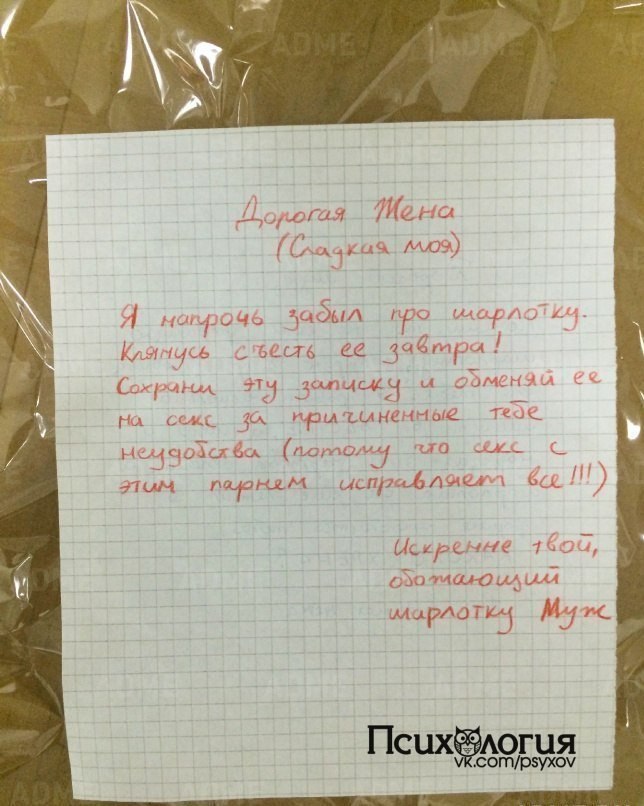 ADME
ADME.
Дорогая Жена
(Сладкая моя)
Я напрочь забыл про шарлотку.
Клянусь съесть ее завтра!
Сохрани эту записку и обменяй ее
на секс за причиненные тебе
неудобства (потому что секс с
этим парнем исправляет все!!!)
Искренне твой,
обожающий
шарлотку Муж
Психология
vk.com/psyxov